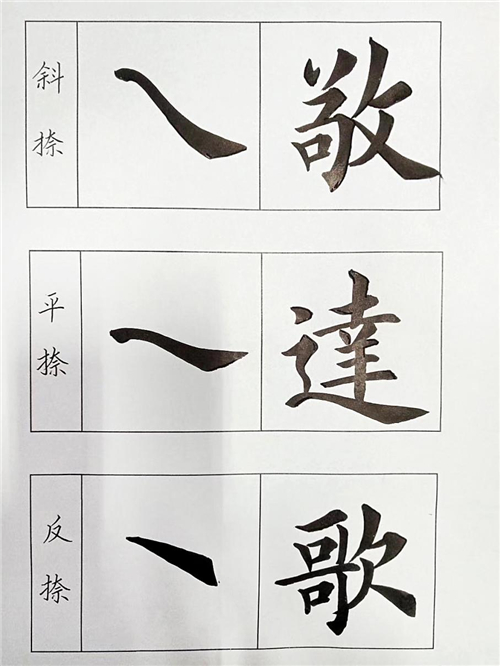 斜捺
敬
平捺
達
反捺
歌